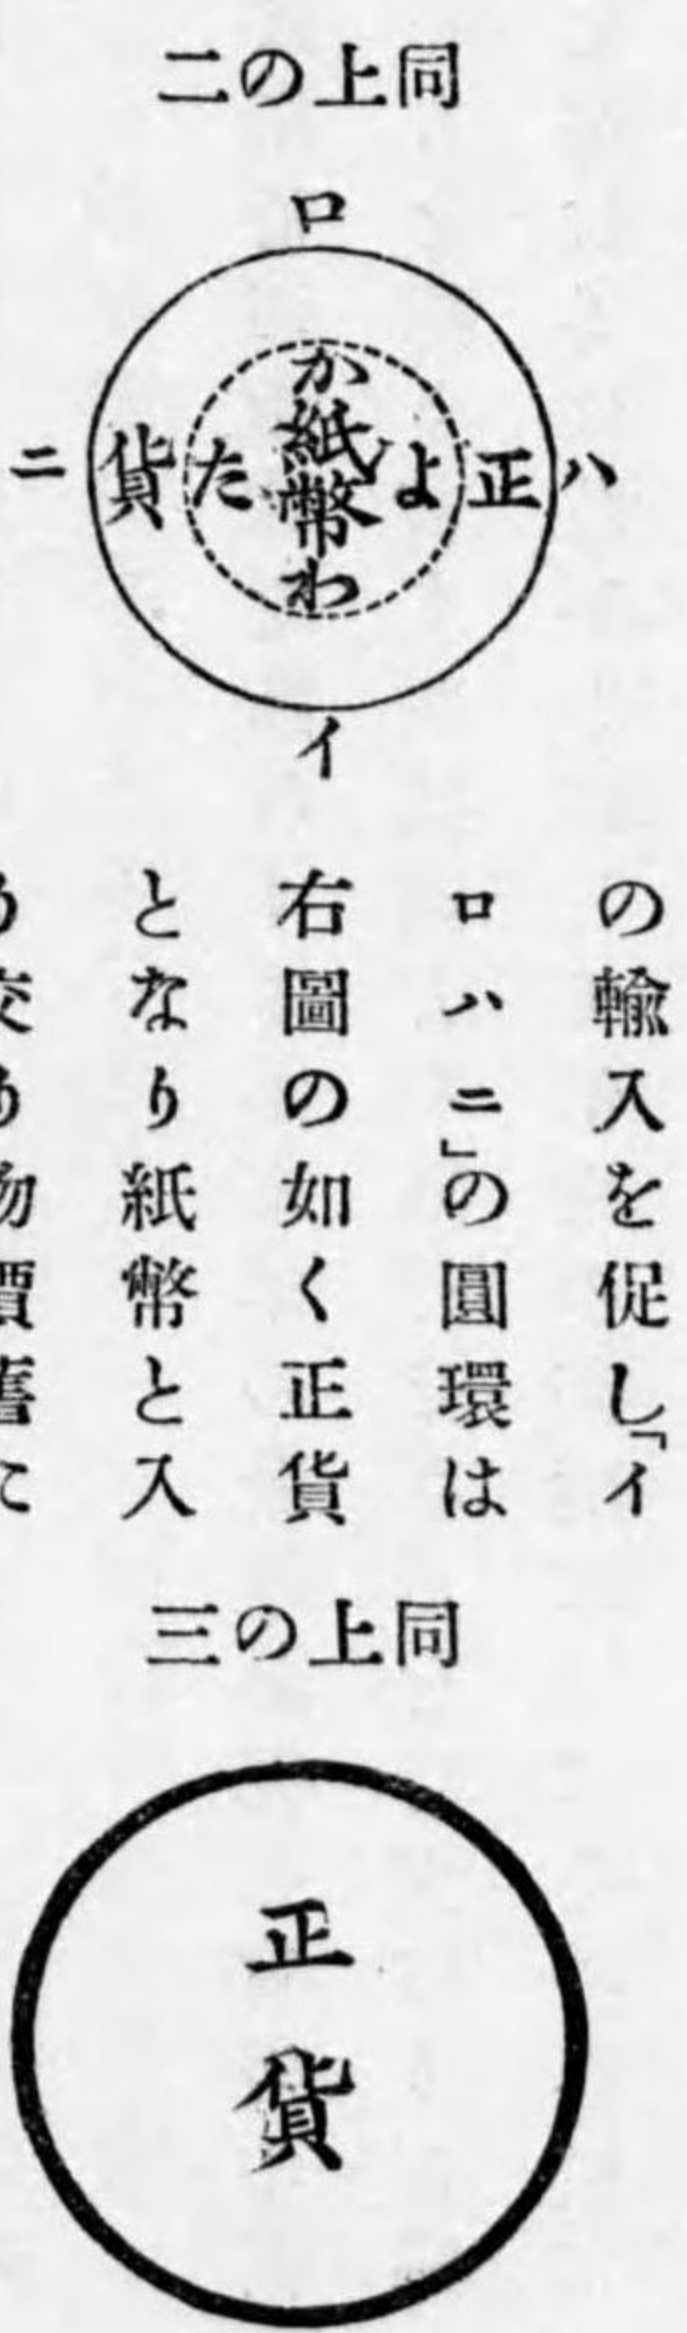 同上の二
ロ
か
紙幣
わ
正よた貨
ハ
ニ
イ
の輸入を促し「イ
ロハニ」の圓環は
右圖の如く正貨
となり紙幣と入
同上の三
正貨